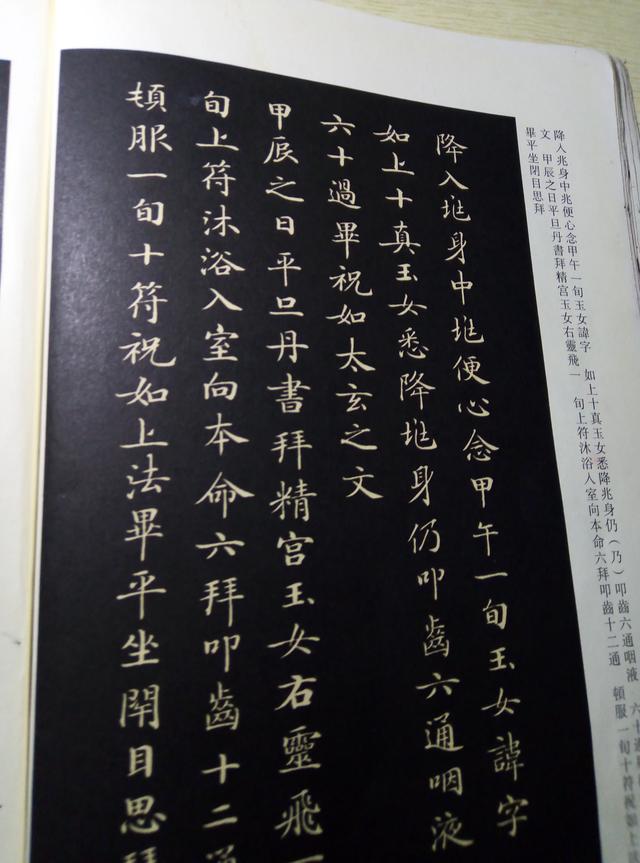 降入兆身中兆便心念甲午一旬玉女諱字 如上十真玉女悉降兆身仍(乃)叩齒六通咽液 六十過
文 甲辰之日平旦丹書拜精宫玉女右靈飛一 旬上符沐浴入室向本命六拜叩齒十二通 頓服一旬十符祝如上
畢平坐閉目思拜
降入垗身中垗便心念甲午一旬玉女諱字
如上十真玉女悉降垗身仍叩齒六通咽液
六十過畢祝如太玄之文
甲辰之日平旦丹書拜精宫玉女右靈飛一
旬上符沐浴入室向本命六拜叩齒十二通
頓服一旬十符祝如上法畢平坐閇目思拜